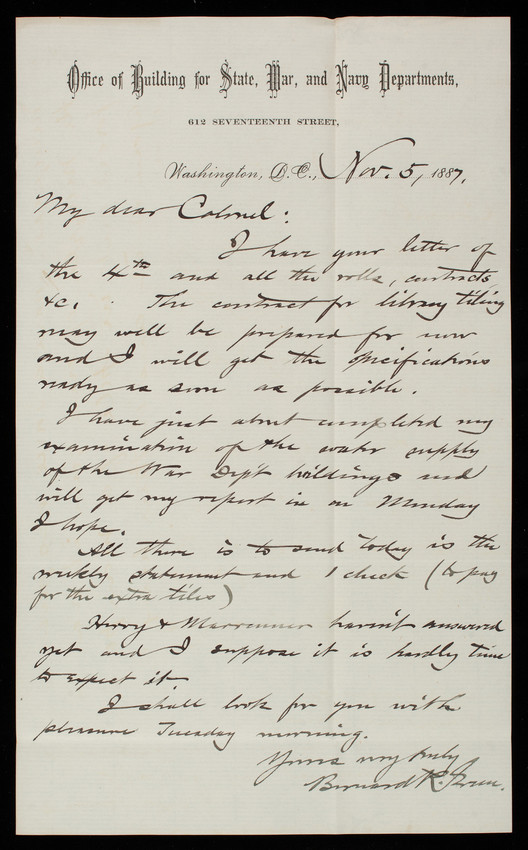 Office of Building for State, War, and Navy Departments,
612 SEVENTEENTH STREET,
Washington, D.C., Nov. 5, 1887.
My dear Colonel:
I have your letter of
the 4th and all the rolls, contracts
&c. The contract for library tiling
may well be prepared for now
and I will get the specifications
ready as soon as possible.
I have just about completed my
examination of the water supply
of the War Dep't buildings and
will get my report in on Monday
I hope.
All there is to send today is the
weekly statement and 1 check (to pay
for the extra tiles)
& haven't answered
yet and I suppose it is hardly time
to expect it.
I shall look for you with
pleasure Tuesday morning.
Yours very truly
Bernard R. Green.